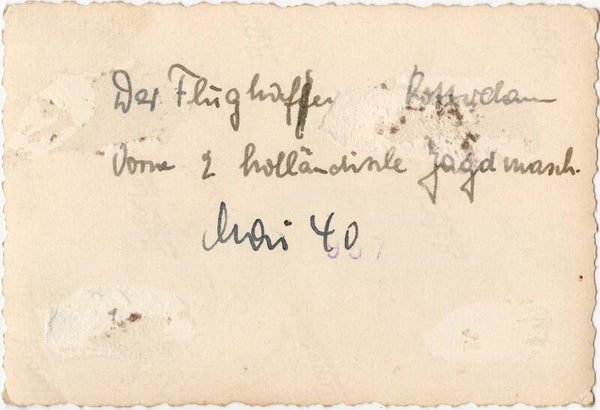 Der Flughaffen Rotterdam
Vorne 2 holländische Jagdmasch.
Mai 40
557